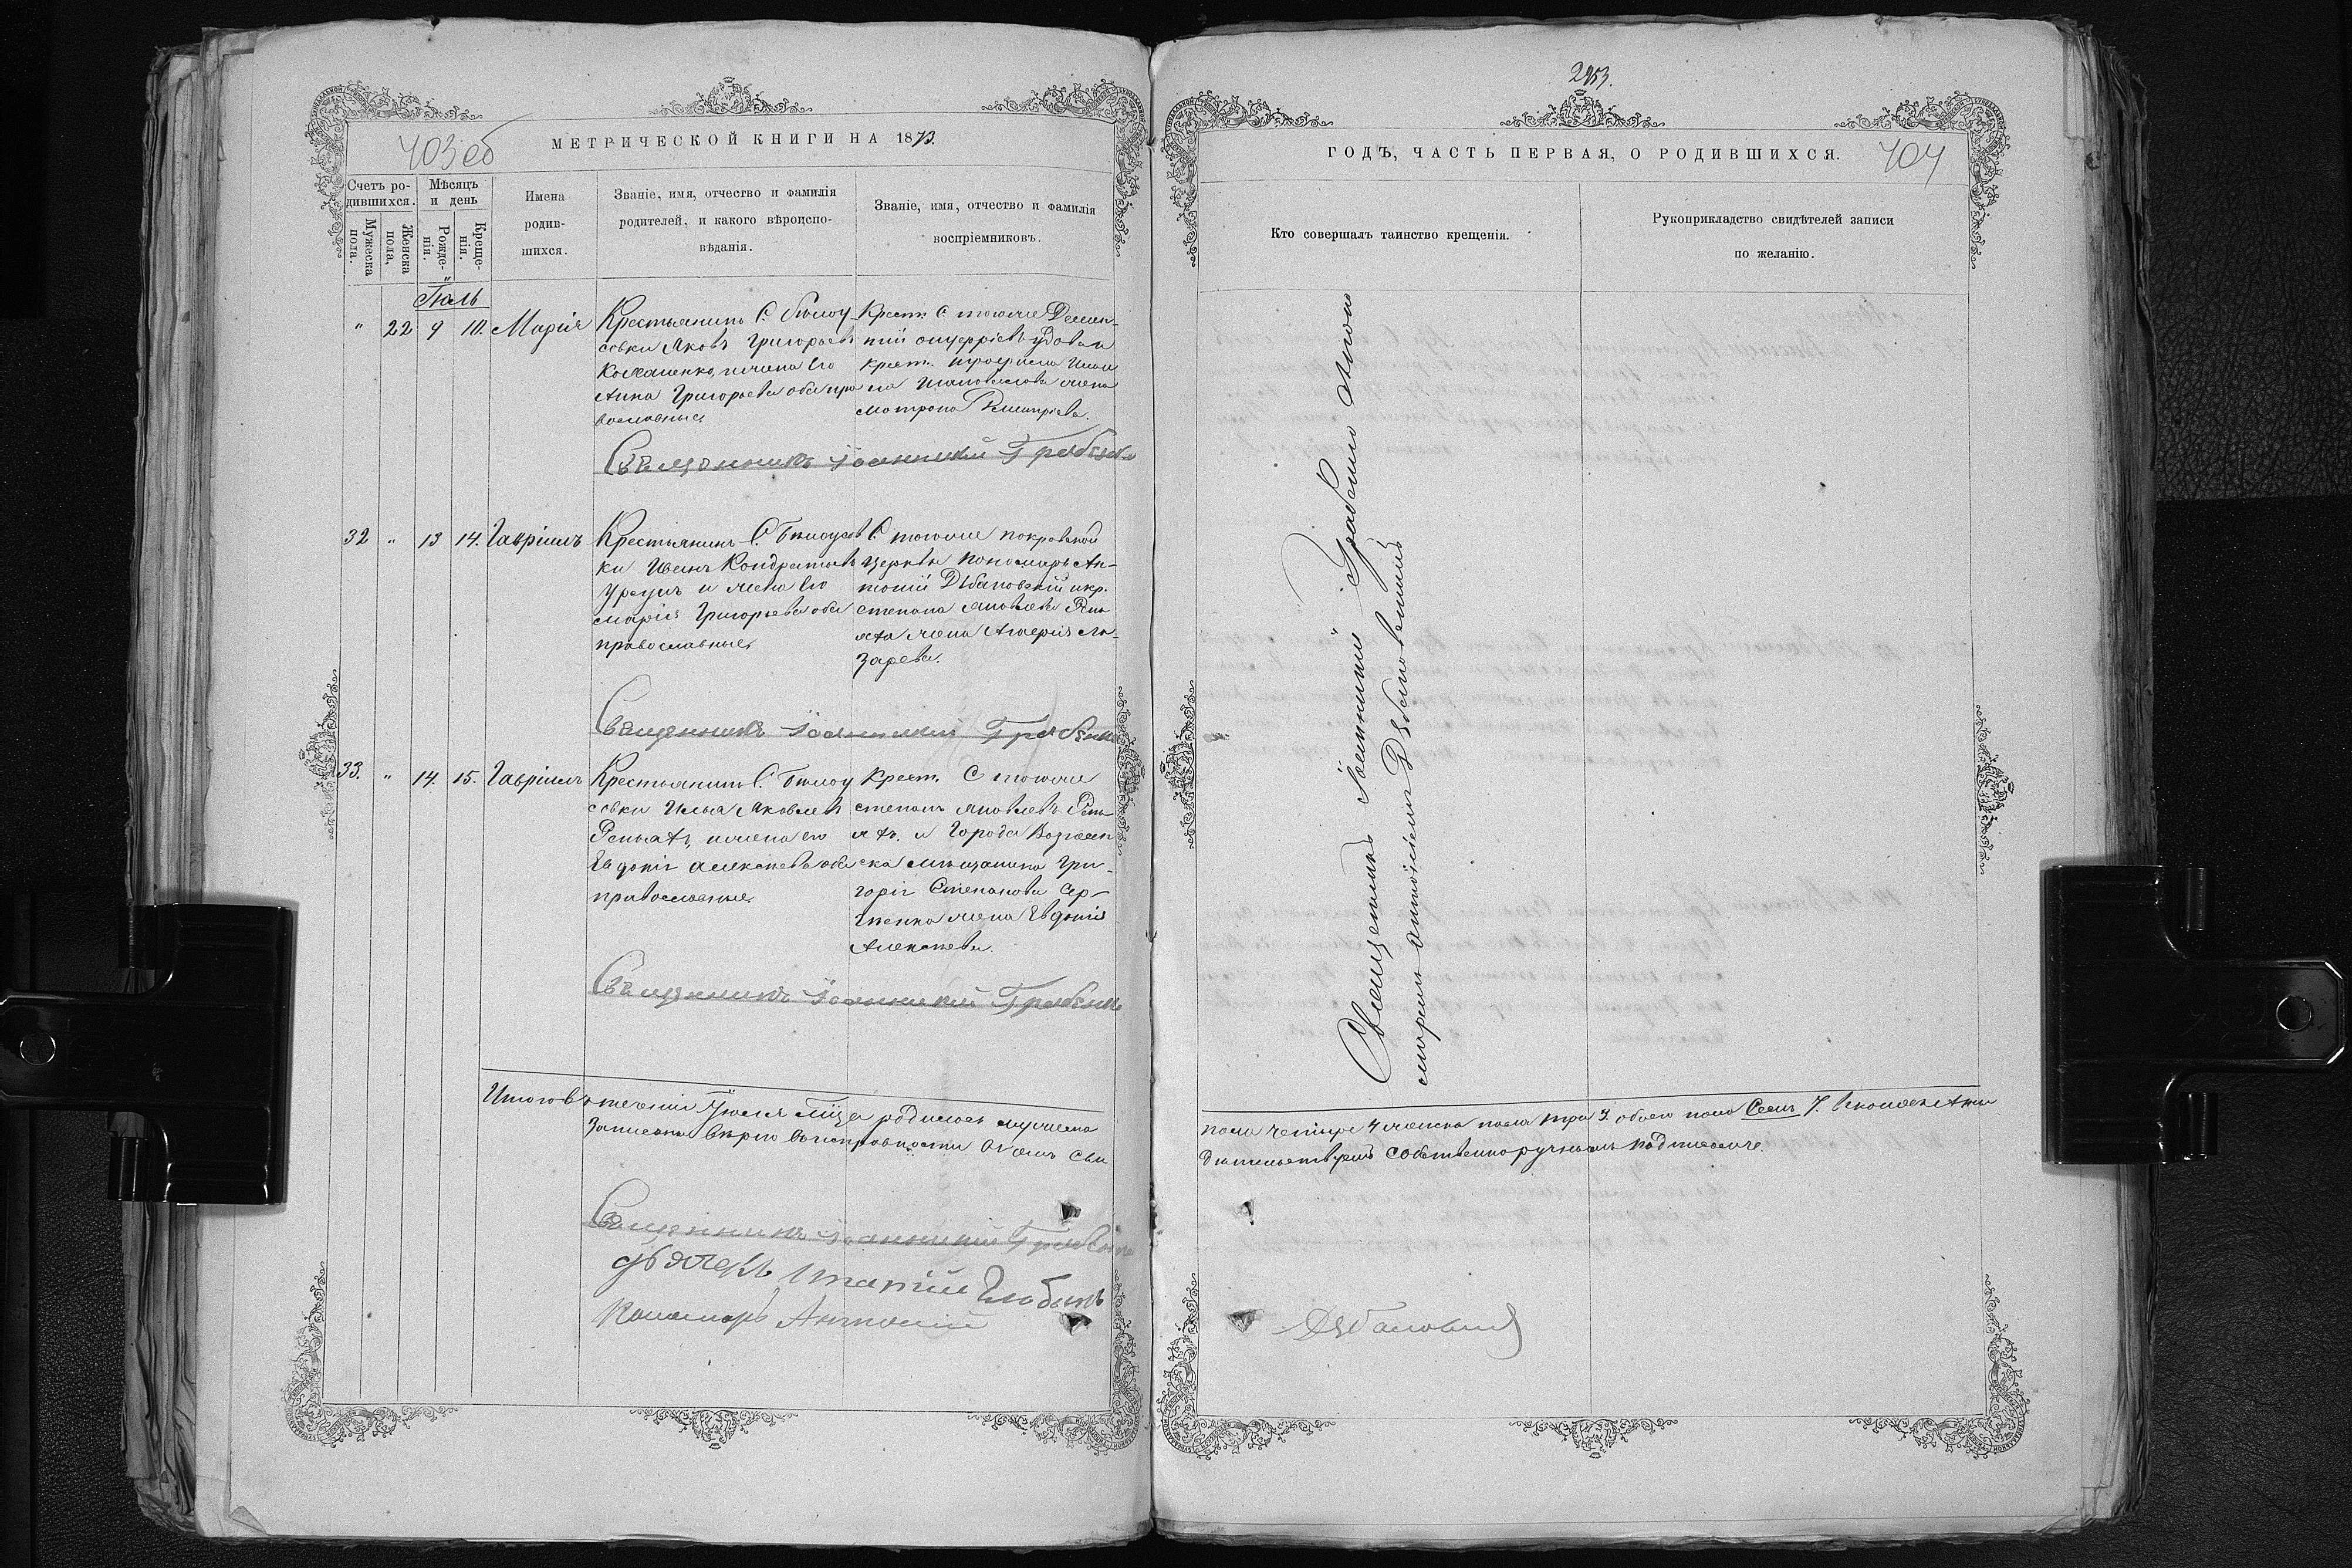 403 об
МЕТРИЧЕСКОЙ КНИГИ НА 1873.
Счетъ ро-
дившихся.
Мужеска
пола.
Женска
пола,
Мѣсяцъ
и день
Рожде-
нія.
Креще-
нія.
Имена
родив-
шихся.
Званіе, имя, отчество и фамилія
родителей, и какого вѣроиспо-
вѣданія.
Званіе, имя, отчество и фамилія
воспріемниковъ.
Іюль
" 22 9 10. Марія
Крестьянинъ С. Бѣлоу
совки Яковъ Григорьевъ
Коваленко, и жена его
Анна Григорьева оба пра
вославные
Крест. С. тогоже Демен-
тій
крест. Ильи
жена
Мотрона Димитріева.
Священникъ Іоанникий Грабенко
32 " 13 14. Гавріилъ
Крестьянинъ С. Бѣлоусов
ки Иванъ Кондратьевъ
Урсулъ и жена его
Марія Григорьева оба
православные
С. тогоже покровской
Церкви Пономарь Ан-
тоній Дѣбановскій и кр.
степана Яковлева Рень
жена Ла-
зарева.
Священникъ Іоанникий Грабенко
33. " 14. 15. Гавріилъ
Крестьянинъ С. Бѣлоу
совки Илья Яковлевъ
и жена его
Евдокія Алексѣева оба
православные
Крест. С тогоже
степанъ Яковлевъ Рень
и Города Вознесен
ска мѣщанина Гри-
горія Степанова Сер-
жена Евдокія
Алексѣева.
Священникъ Іоанникий Грабенко
Итого въ теченіи Іюля мѣсяца родилось мужеска
Записаны вѣрно въ исправности О чемъ сви
Священникъ Іоанникий Грабенко
дьячекъ Игнатій
Пономарь Антоній
2953.
ГОДЪ, ЧАСТЬ ПЕРВАЯ, О РОДИВШИХСЯ.
404
Кто совершалъ таинство крещенія.
Рукоприкладство свидѣтелей записи
по желанію.
Священникъ Іоанникий Грабенко съ поно
маремъ Антоніемъ Дѣбановскимъ
пола четыре 4 женска пола три 3. обоего пола Семь 7.
дѣтельствуемъ собственноручнымъ подписомъ.
Дѣбановскій